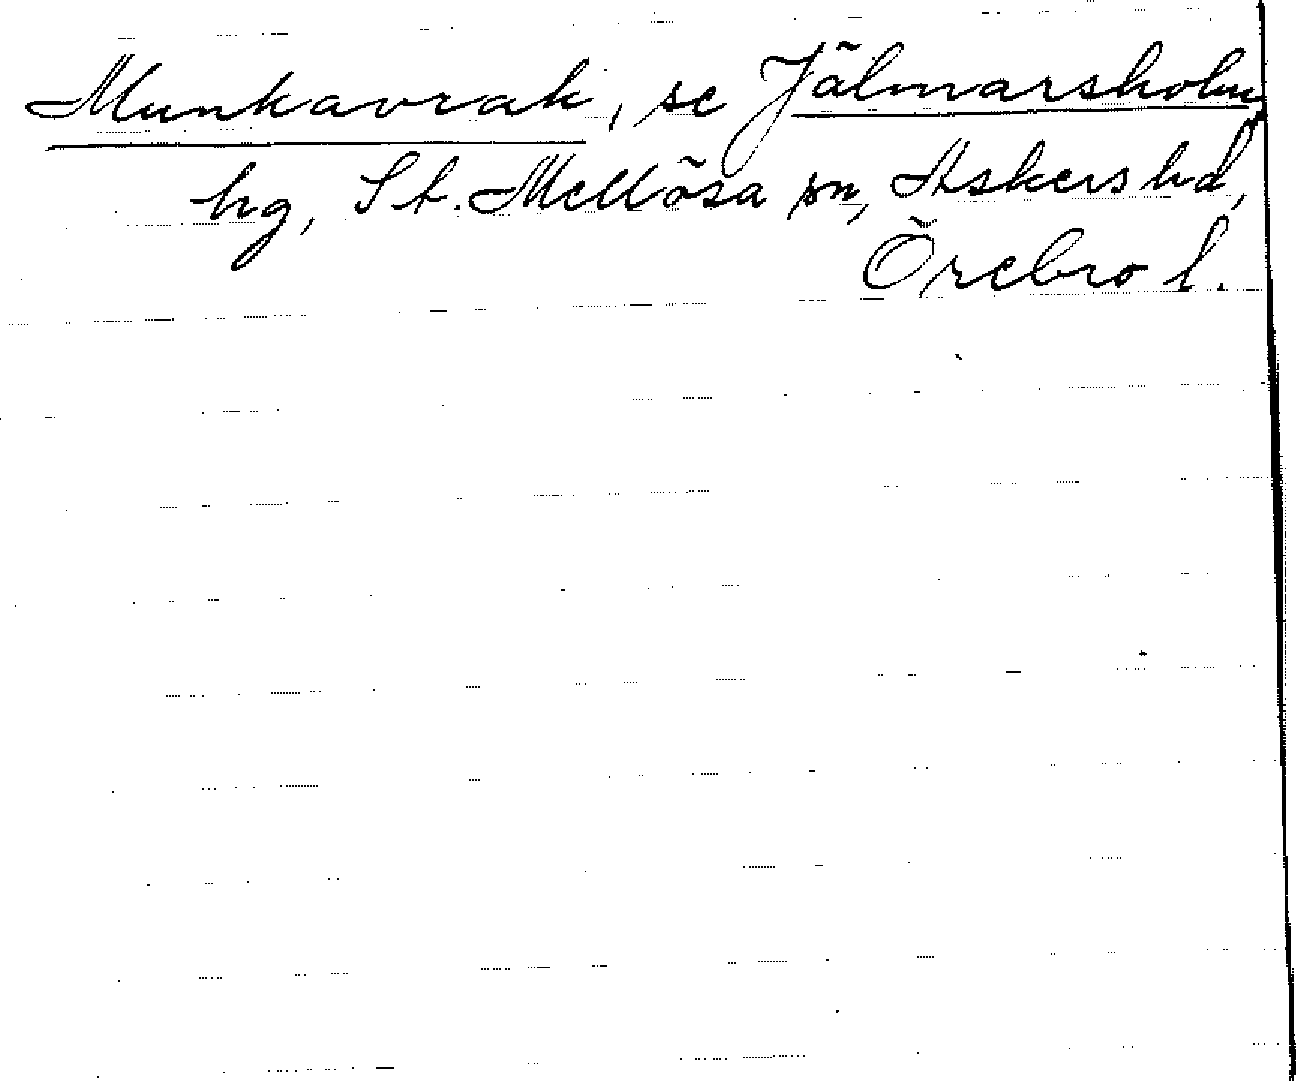 Munkavrak, se Jälmarsholm,
hg, St. Mellösa sn, Askers hd,
Örebro l.